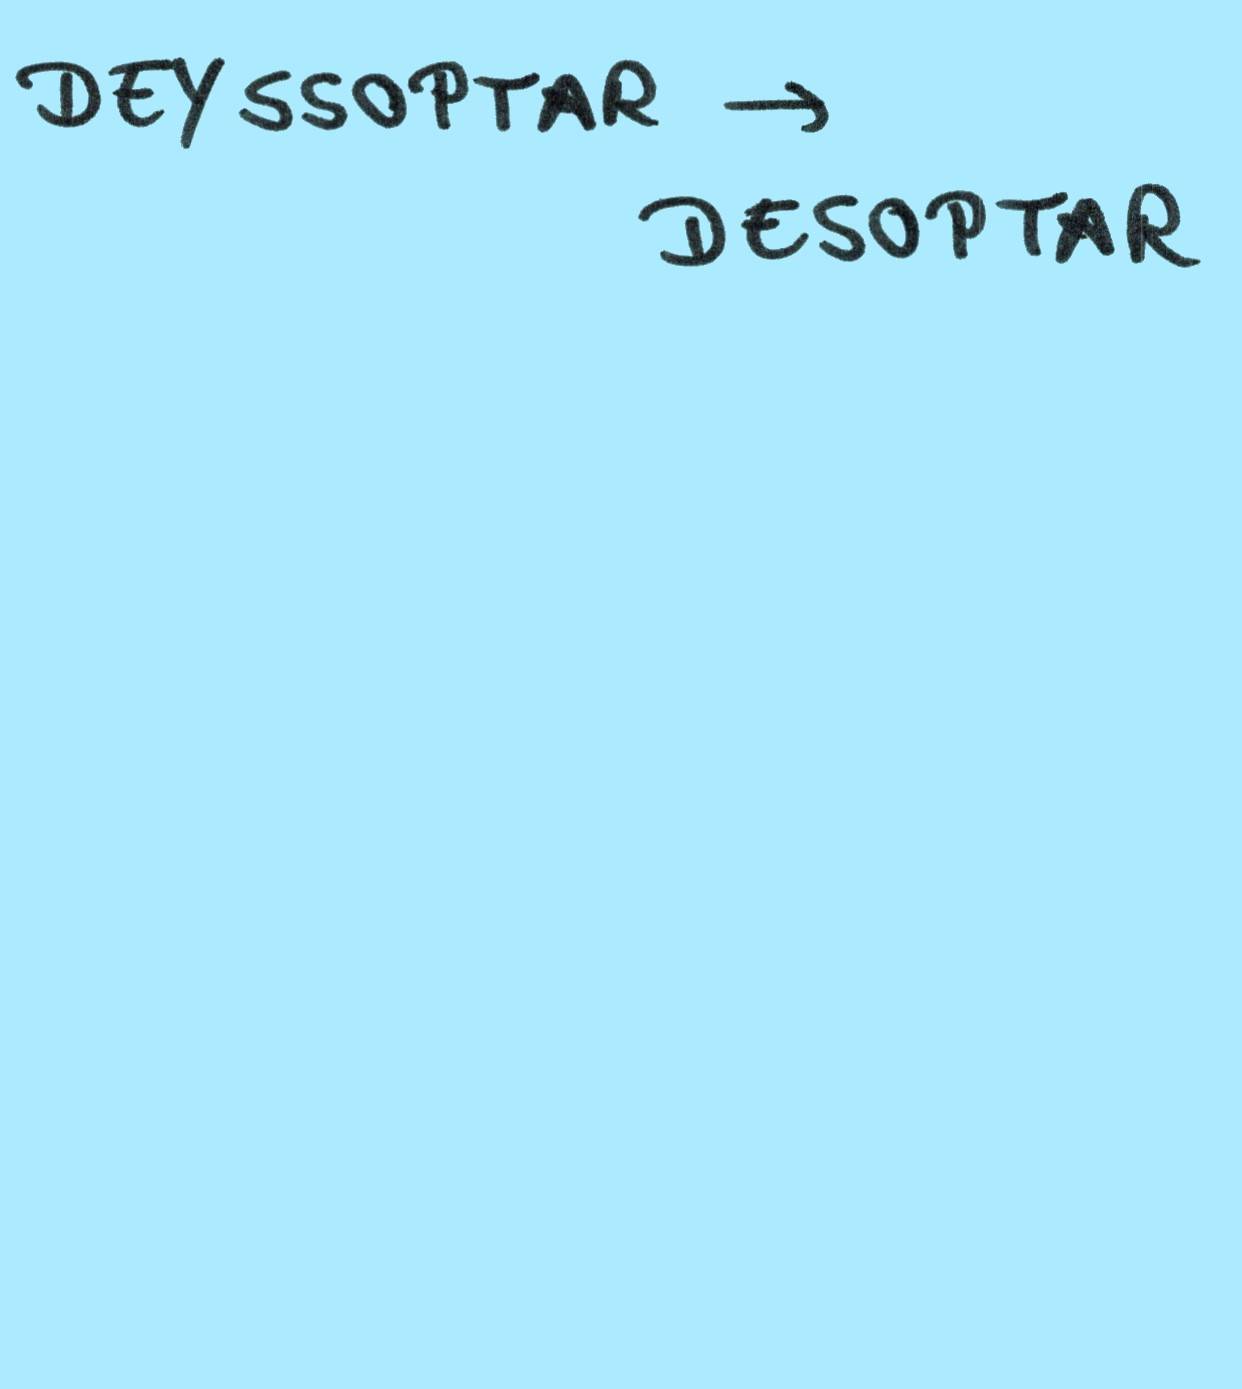 DEYSSOPTAR →
DESOPTAR